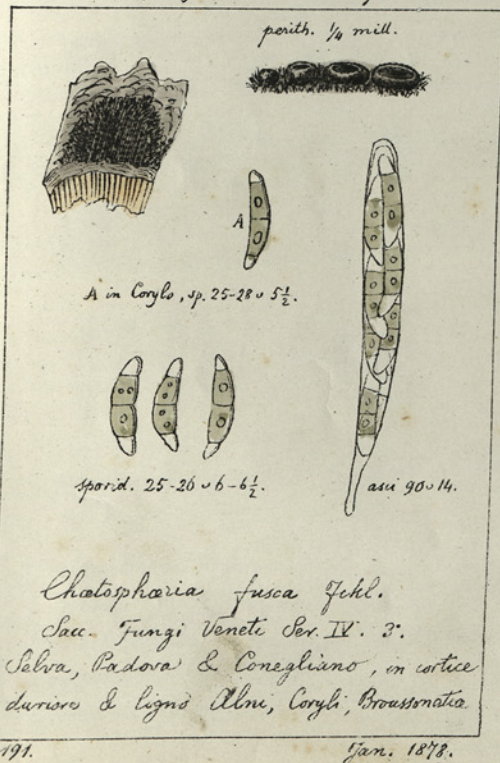 perith. 1/4 mill.
A
A in Corylo, sp. 25-28 ᴗ 5 1/2.
sporid. 25-26 ᴗ 6-6 1/2.
asci 90 ᴗ 14.
Chætosphæria fusca Fckl.
Sacc. Fungi Veneti Ser. IV. 3.
Selva, Padova & Conegliano, in cortice
duriore & ligno Alni, Coryli, Broussonetiæ
191.
Jan. 1878.